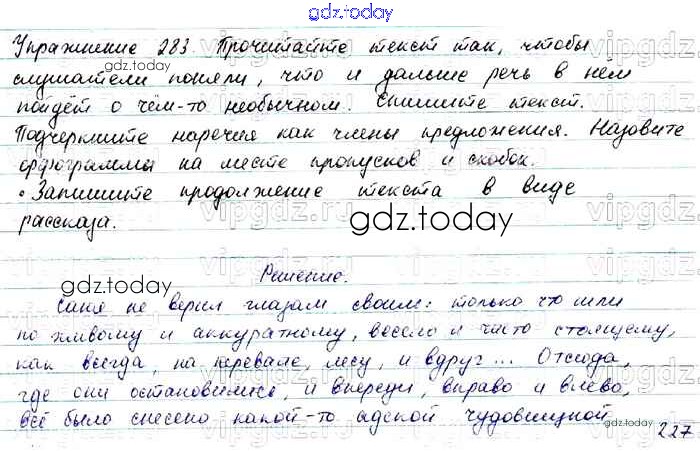 gdz.today
Упражнение 283. Прочитайте текст так, чтобы
слушатели поняли, что и дальше речь в нём
пойдёт о чём-то необычном. Спишите текст.
Подчеркните наречия как члены предложения. Назовите
орфограммы на месте пропусков и скобок.
• Запишите продолжение текста в виде
рассказа.
gdz.today
gdz.today
gdz.today
Решение.
Саня не верил глазам своим: только что шли
по живому и аккуратному, весело и чисто стоящему,
как всегда, на перевале, лесу, и вдруг... Отсюда,
где они остановились, и впереди, вправо и влево,
всё было снесено какой-то адской чудовищной
gdz.today
227